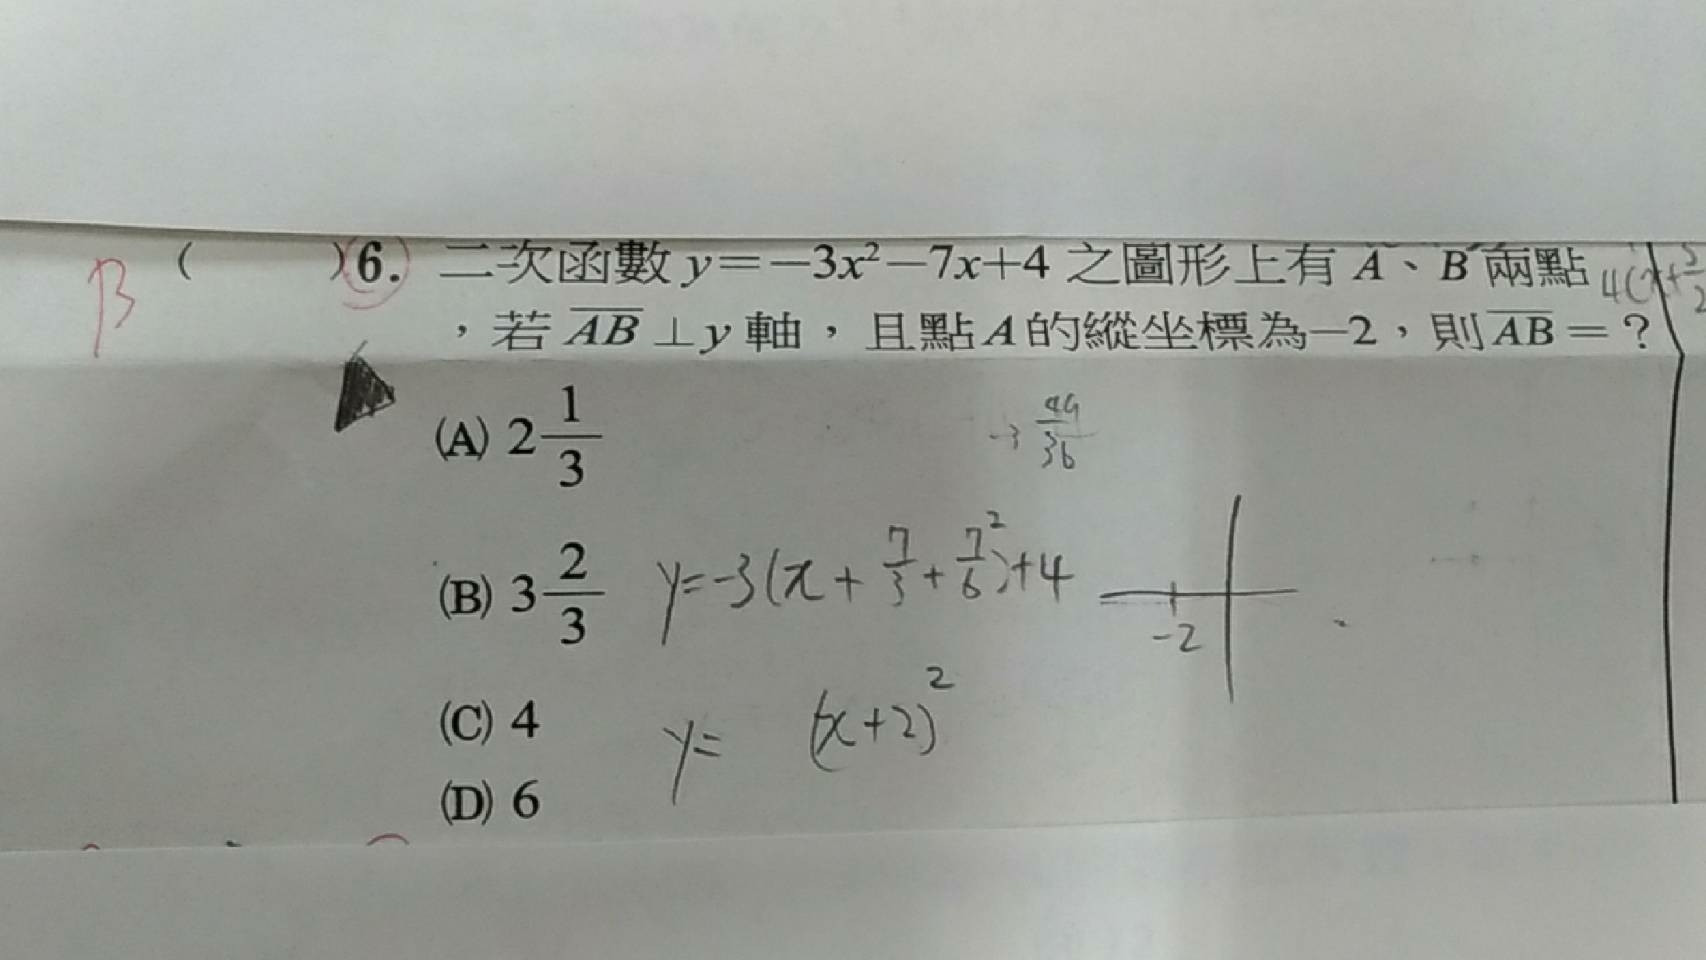 B
( )6. 二次函數 y=−3x²−7x+4 之圖形上有 A、B 兩點
，若 AB⊥y 軸，且點 A 的縱坐標為−2，則 AB=？
(A) 2 1/3
-3 49/36
(B) 3 2/3
y=-3(x+7/3+7/6²)+4
-2
(C) 4
y= (x+2)²
(D) 6